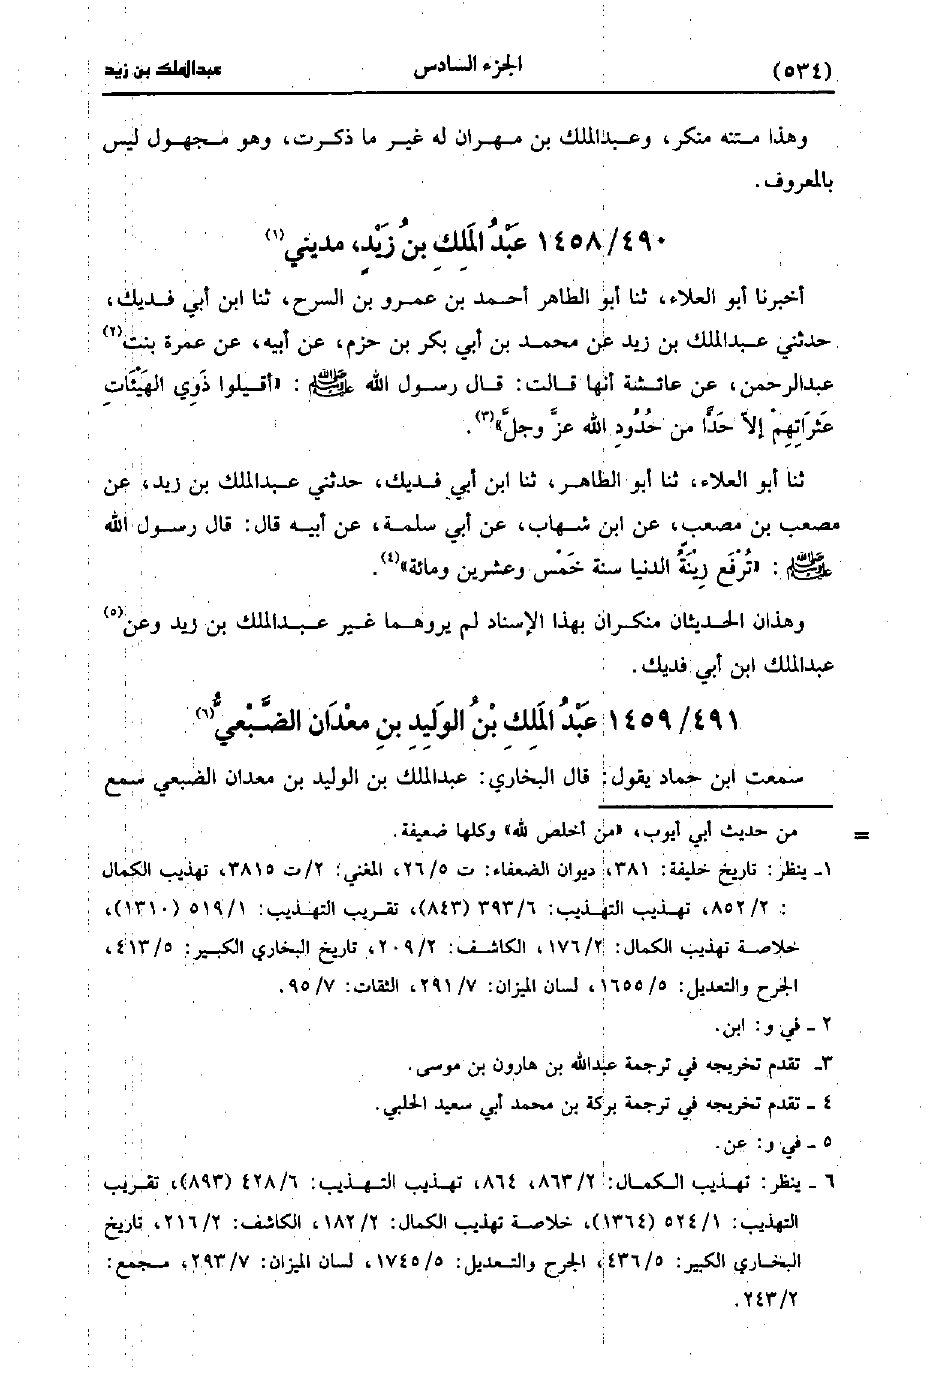 (٥٣٤) الجزء السادس عبدالملك بن زيد
وهذا متنه منكر، وعبدالملك بن مهران له غير ما ذكرت، وهو مجهول ليس
بالمعروف.
١٤٥٨/٤٩٠ عَبْدُ المَلِكِ بنُ زَيْدٍ، مديني(١)
أخبرنا أبو العلاء، ثنا أبو الطاهر أحمد بن عمرو بن السرح، ثنا ابن أبي فديك،
حدثني عبدالملك بن زيد عن محمد بن أبي بكر بن حزم، عن أبيه، عن عمرة بنت(٢)
عبدالرحمن، عن عائشة أنها قالت: قال رسول الله ﷺ : «أقيلوا ذَوِي الهَيْئَاتِ
عَثَرَاتِهِمْ إلاَّ حَدًّا من حُدُودِ الله عزَّ وجلَّ»(٣).
ثنا أبو العلاء، ثنا أبو الطاهر، ثنا ابن أبي فديك، حدثني عبدالملك بن زيد، عن
مصعب بن مصعب، عن ابن شهاب، عن أبي سلمة، عن أبيه قال: قال رسول الله
ﷺ : «تُرْفَع زِينَةُ الدنيا سنة خَمْس وعشرين ومائة»(٤).
وهذان الحديثان منكران بهذا الإسناد لم يروهما غير عبدالملك بن زيد وعن(٥)
عبدالملك ابن أبي فديك.
١٤٥٩/٤٩١ عَبْدُ المَلِكِ بْنُ الوَلِيدِ بنِ معْدَان الضَّبْعيُّ(٦)
سمعت ابن حماد يقول: قال البخاري: عبدالملك بن الوليد بن معدان الضبعي سمع
= من حديث أبي أيوب، «من أخلص لله» وكلها ضعيفة.
١ـ ينظر: تاريخ خليفة: ٣٨١، ديوان الضعفاء: ت ٢٦/٥، المغني: ٢/ت ٣٨١٥، تهذيب الكمال
: ٨٥٢/٢، تهذيب التهذيب: ٣٩٣/٦ (٨٤٣)، تقريب التهذيب: ٥١٩/١ (١٣١٠)،
خلاصة تهذيب الكمال: ١٧٦/٢، الكاشف: ٢٠٩/٢، تاريخ البخاري الكبير: ٤١٣/٥،
الجرح والتعديل: ١٦٥٥/٥، لسان الميزان: ٢٩١/٧، الثقات: ٩٥/٧.
٢ ـ في و: ابن.
٣ـ تقدم تخريجه في ترجمة عبدالله بن هارون بن موسى.
٤ ـ تقدم تخريجه في ترجمة بركة بن محمد أبي سعيد الحلبي.
٥ ـ في و: عن.
٦ ـ ينظر: تهذيب الكمال: ٨٦٣/٢، ٨٦٤، تهذيب التهذيب: ٤٢٨/٦ (٨٩٣)، تقريب
التهذيب: ٥٢٤/١ (١٣٦٤)، خلاصة تهذيب الكمال: ١٨٢/٢، الكاشف: ٢١٦/٢، تاريخ
البخاري الكبير: ٤٣٦/٥، الجرح والتعديل: ١٧٤٥/٥، لسان الميزان: ٢٩٣/٧، مجمع:
٢٤٣/٢.